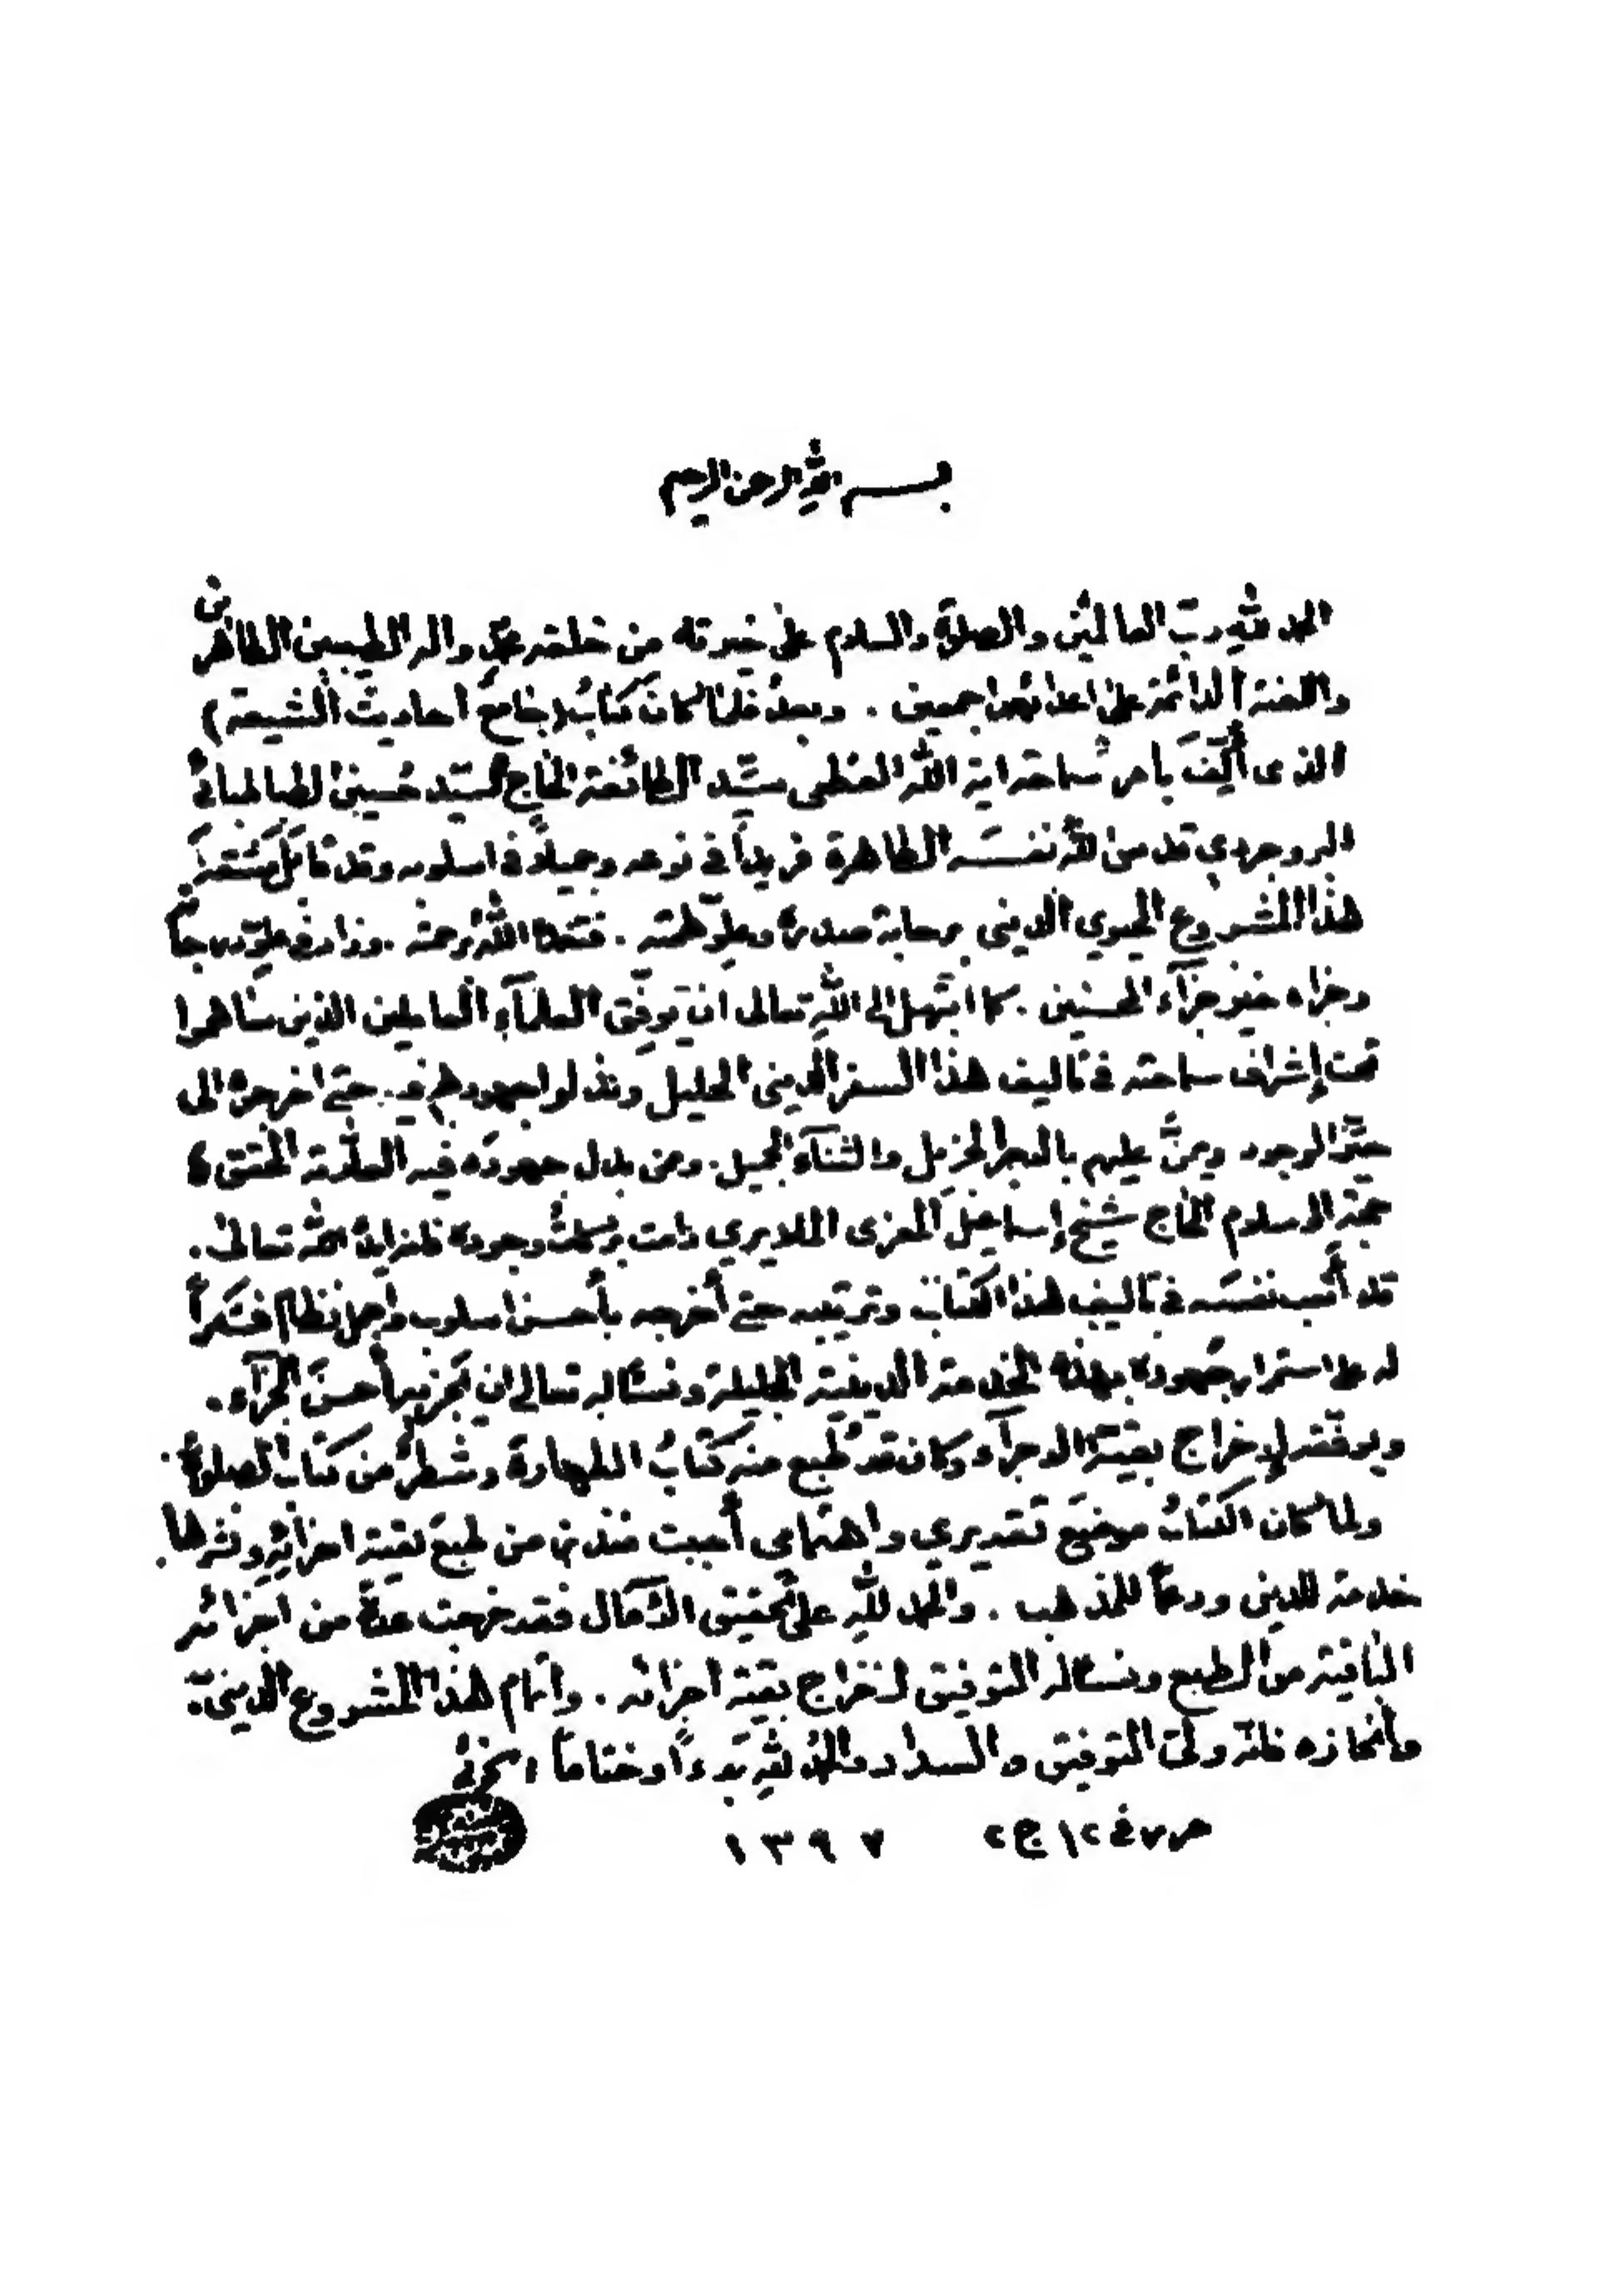 بسم الله الرحمن الرحيم
الحمد لله رب العالمين والصلوة والسلام على خيرته من خلقه محمد واله الطيبين الطاهرين
واللعنة الدائمة على اعدائهم اجمعين . وبعد فلما كان كتاب (جامع احاديث الشيعة)
الذى أُلِّفَ بامر سماحة اية الله العظمى سيّد الطائفة الحاج السيّد حسين الطباطبائى
البروجردي قدس الله نفسه الطاهرة فريداً فى نوعه وجميلاً فى اسلوبه وقد
هذا المشروع الحيوي الدينى برحابة صدره وعلوّ همته . فتغمده الله برحمته . وزاد فى علوّ درجاته
وجزاه خير جزآء المحسنين . كما ابتهل الى الله تعالى ان يوفّق العلمآء العاملين الذين ساهموا
تحت إشراف سماحته فى تاليف هذا السفر الدينى الجليل وبذلوا جهودهم فيه . حتى اخرجوه الى
حيّز الوجود ويمنّ عليهم بالاجر الجزيل والثنآء الجميل . وممن بذل جهوده فيه العلّامة المحقق
حجة الاسلام الحاج شيخ إسماعيل المعزى الملايري دامت بركات وجوده فلقد ايده الله تعالى .
قد أتعب نفسه فى تاليف هذا الكتاب وترتيبه حتى أخرجه بأحسن اسلوب وأجمل نظام فشكراً
له على استمرار جهوده بهذه الخدمة الدينية الجليلة ونسئاله تعالى ان يجزيه أحسن الجزآء .
ويوفقه لإخراج بقية الاجزآء وكان قد طُبع منه كتابُ الطهارة وشطرٌ من كتاب الصلوة .
ولما كان الكتابُ موضع تقديري واهتمامى أحببت من طبع بقية اجزائه ونشرها .
خدمة للدين ودعماً للمذهب . والحمد لله على تحقيق الآمال فقد خرجت عدة من اجزائه
الباقية من الطبع ونسئاله التوفيق لاخراج بقية اجزائه . واتمام هذا المشروع الدينى
وانجازه فانه ولىّ التوفيق والسداد والحمد لله بدءاً وختاماً ، الخوئى
فى ١٢ ج٢ ١٣٩٧